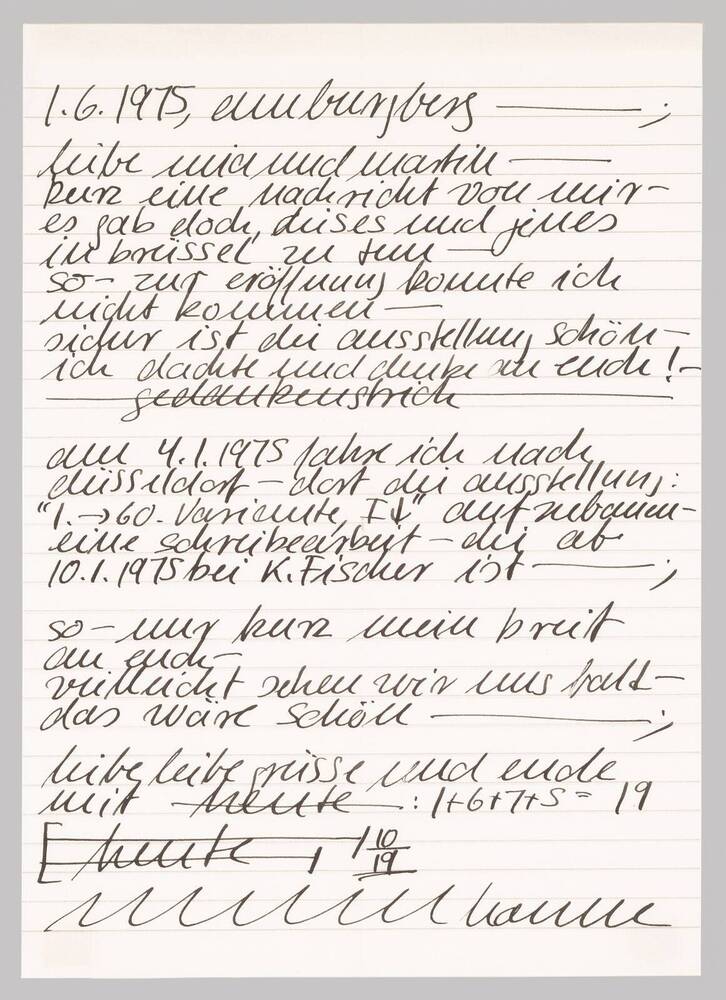 1.6.1975, amburgberg ———;
leibe mia und martin ———
kurz eine nachricht von mir –
es gab doch dieses und jenes
in brüssel zu tun —
so – zur eröffnung konnte ich
nicht kommen —
sicher ist die ausstellung schön –
ich dachte und denke an euch! –
gedankenstrich
am 4.1.1975 fahre ich nach
düsseldorf – dort die ausstellung:
"1. → 60. Variante, I↓" aufzubauen –
eine schreibearbeit – die ab
10.1.1975 bei K. Fischer ist ———;
so – nur kurz mein breif
an euch –
veilleicht sehen wir uns bald –
das wäre schön ———;
leibe leibe grüsse und ende
mit heute : 1+6+7+5 = 19
heute, 10/19
hanne